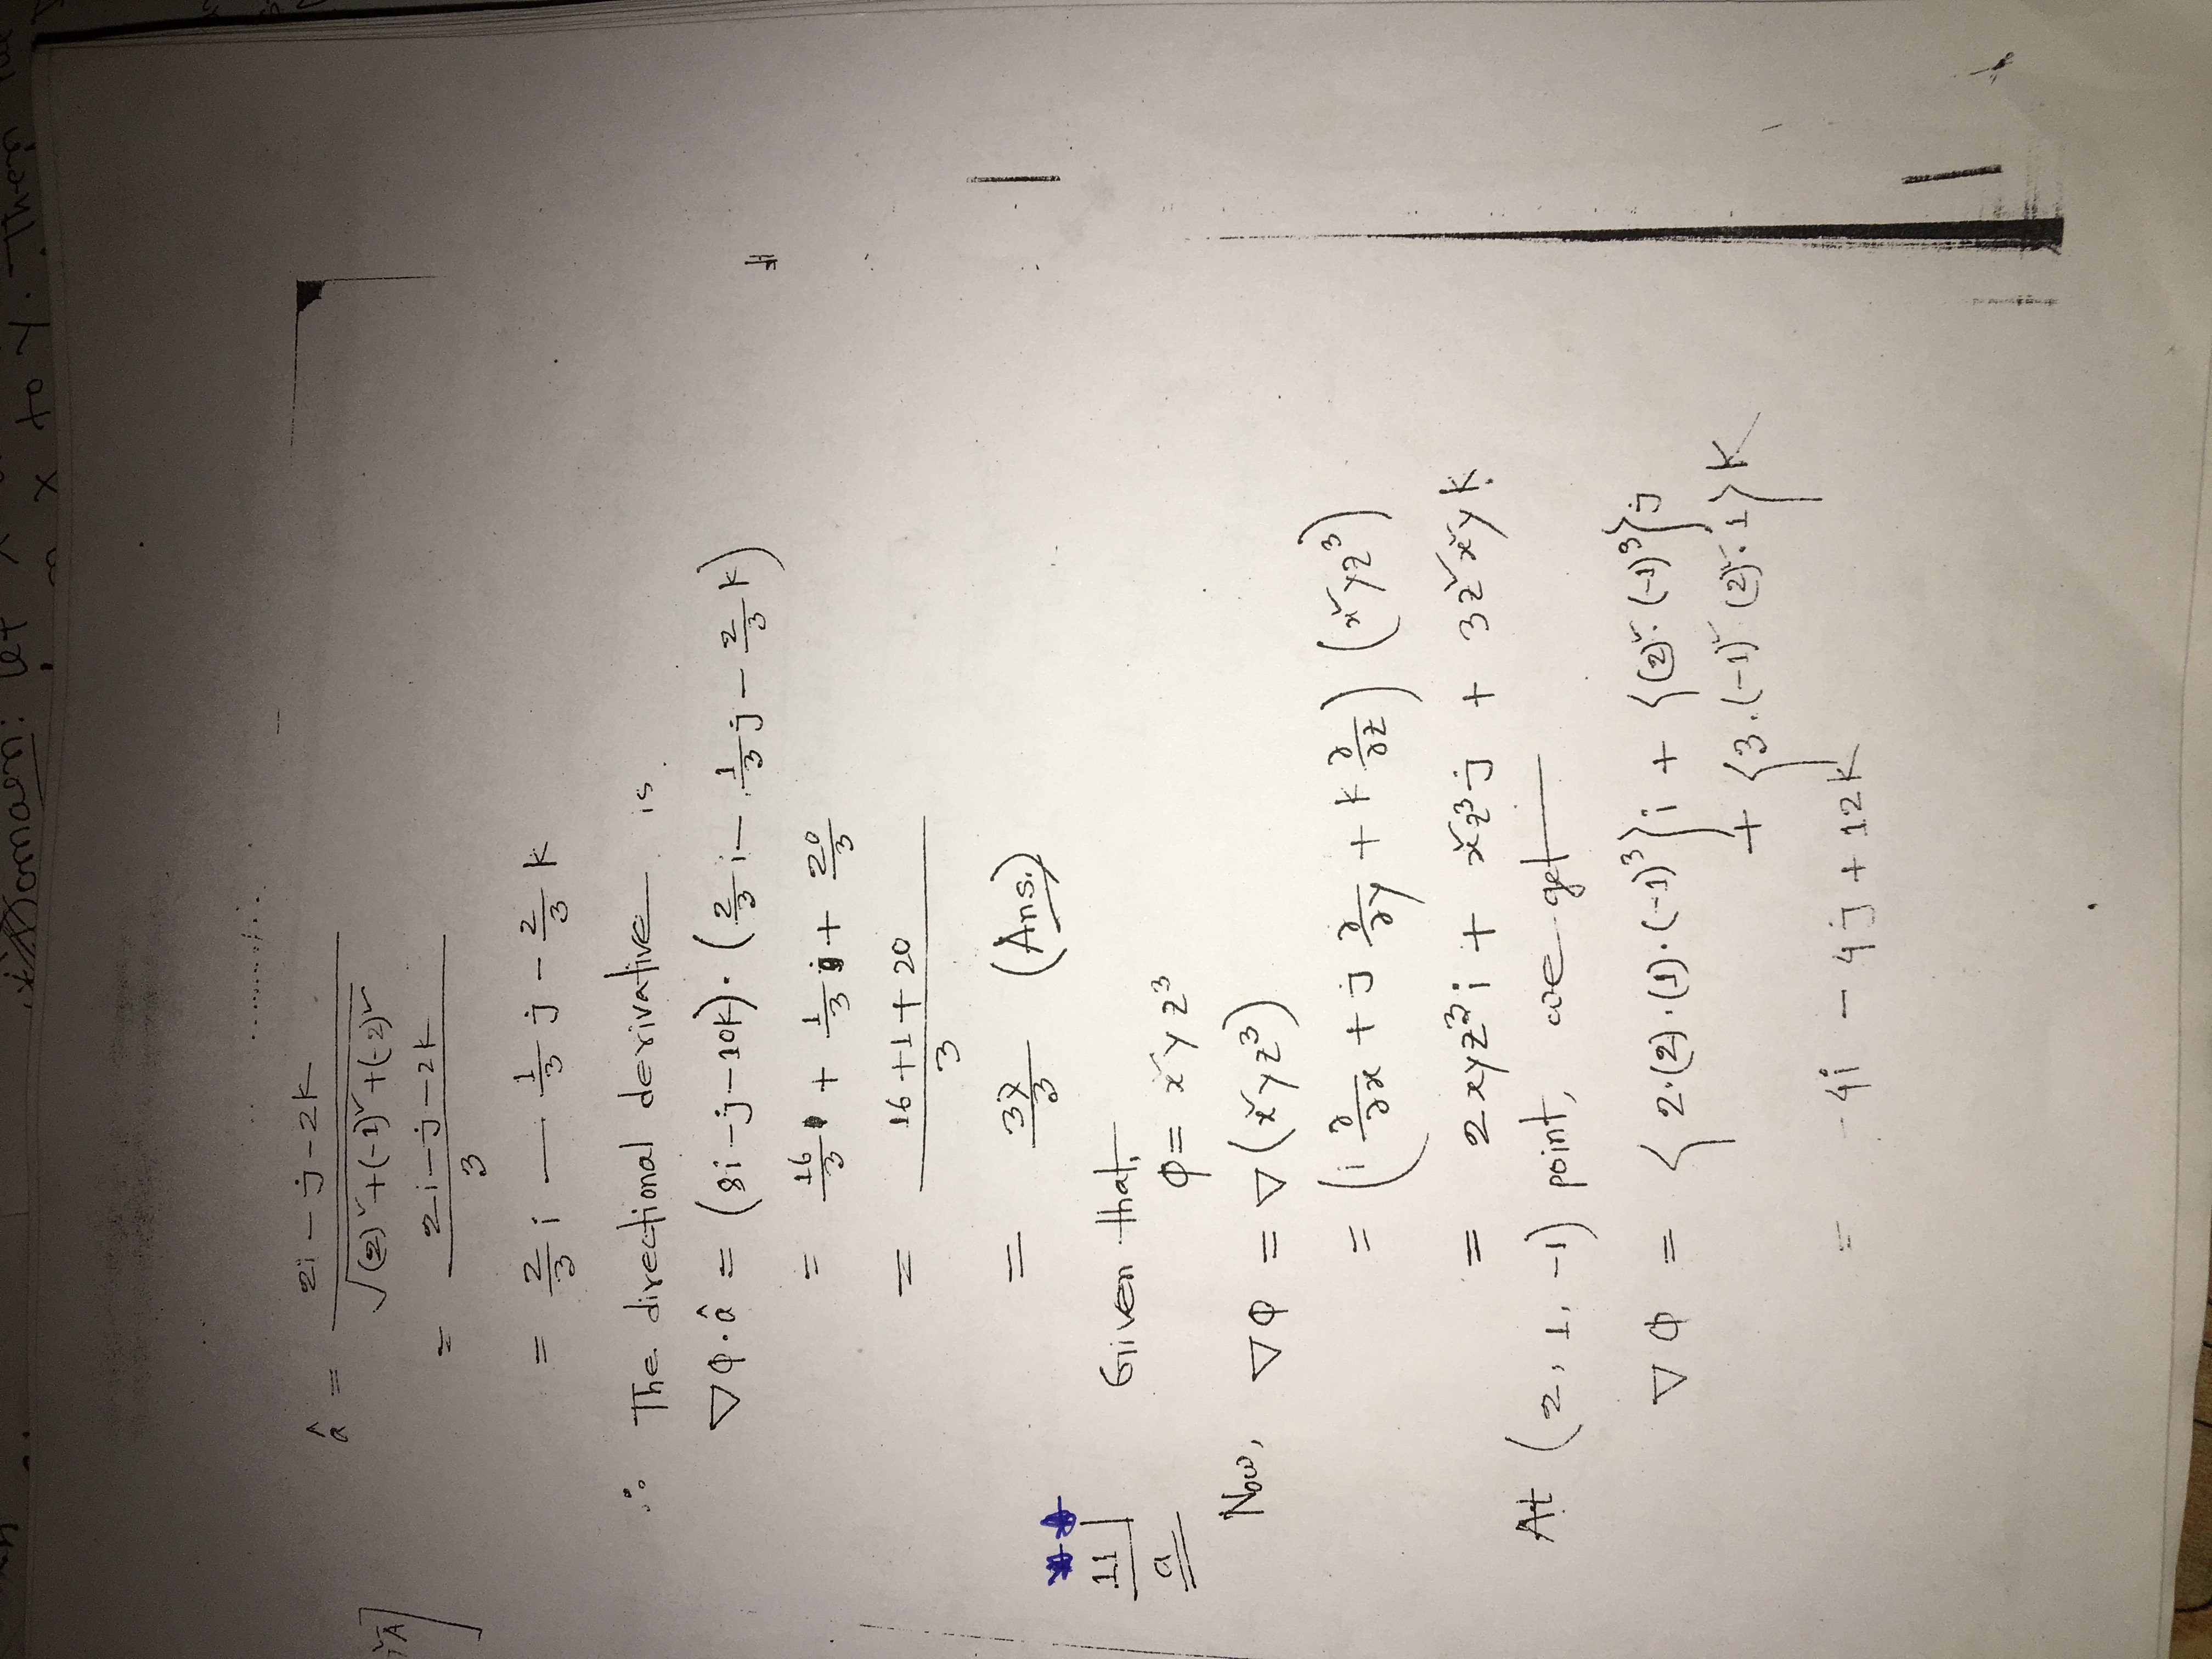 Domain: Let X
x to y. Then
A]
â = 2i - j - 2k / √(2)² + (-1)² + (-2)²
= 2i - j - 2k / 3
= 2/3 i - 1/3 j - 2/3 k
∴ The directional derivative is
∇φ.â = (8i - j - 10k). (2/3 i - 1/3 j - 2/3 k)
= 16/3 + 1/3 + 20/3
= 16 + 1 + 20 / 3
= 37/3 (Ans.)
11
a
Given that,
φ = x²yz³
Now, ∇φ = ∇(x²yz³)
= (i ∂/∂x + j ∂/∂y + k ∂/∂z) (x²yz³)
= 2xyz³i + x²z³j + 3z²x²yk.
At (2, 1, -1) point, we get
∇φ = {2.(2).(1).(-1)³}i + {(2)².(-1)³}j
+ {3.(-1)² (2)².1}k
= -4i - 4j + 12k